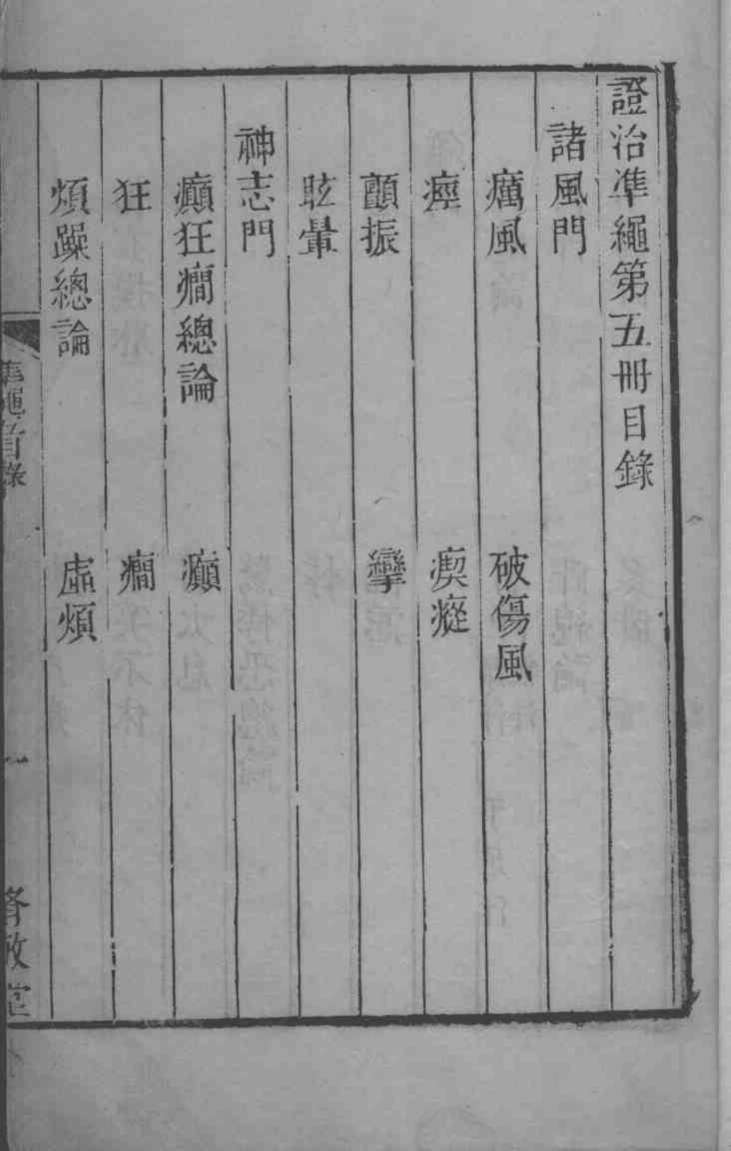 證治準繩第五冊目錄
諸風門
癘風 破傷風
痙 瘈瘲
顫振 攣
眩暈
神志門
癲狂癇總論 癲
狂 癇
煩躁總論 虛煩
繩目錄
一
脩敬堂